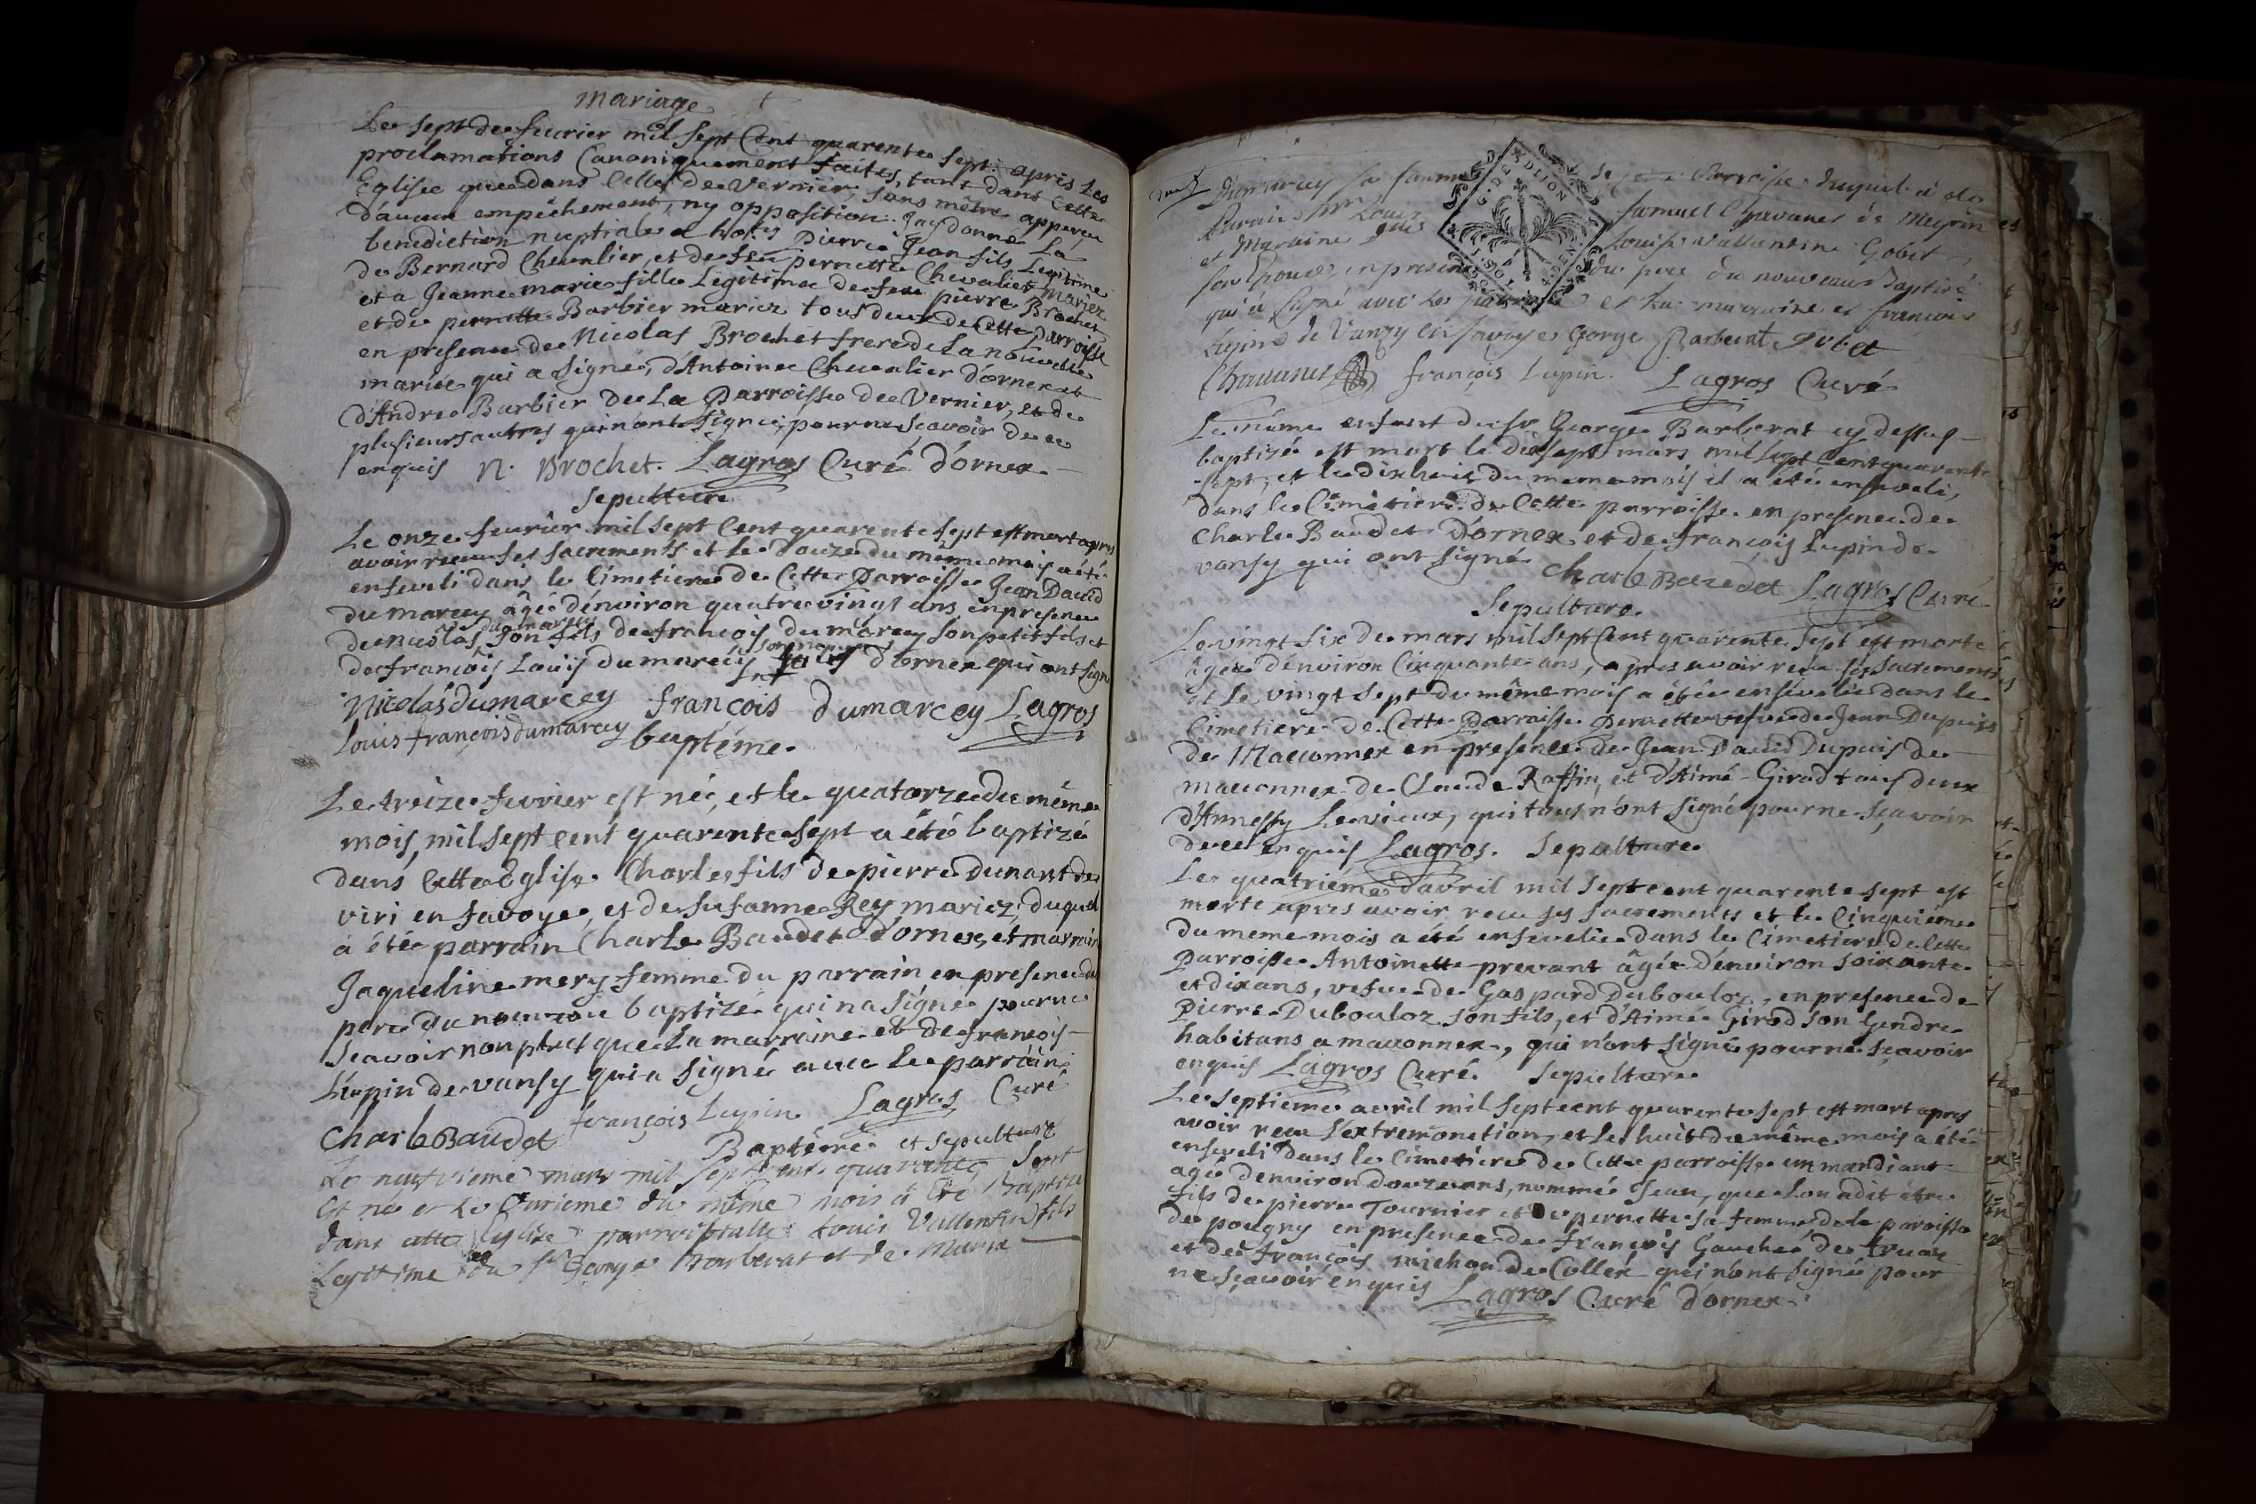 mariage
Le sept de feurier mil sept Cent quarente sept. après les
proclamations Canoniquement faites, tant dans Cette
Eglise que dans Celle de Vernier, sans mêtre apperçu
d'aucun empêchement, ny opposition. J'ay donné La
benediction nuptiale a hon Pierre Jean fils Legitime
de Bernard Chevalier, et de feu pernette Chevalier mariez
et a Jeanne marie fille Legitime de feu pierre Brochet
et de pernette Barbier mariez tous deux de Cette Parroisse
en presence de Nicolas Brochet frere de La nouvelle
mariée qui a signé, d'Antoine Chevalier d'ornex et
d'Andre Barbier de La Parroisse de Vernier, et de
plusieurs autres qui n'ont signé pour ne scavoir de ce
enquis N. Brochet. Lagros Curé d'ornex.
Sepulture
Le onze feurier mil sept Cent quarente sept est mort apres
avoir reçu ses sacrements et le douze du même mois a été
enseveli dans le Cimetiere de Cette Parroisse Jean David
du marcey âgé d'environ quatre vingt ans en presence
de nicolas dumarcey son fils de françois du marcey son petit fils et
de françois Louis du marcey son neveu d'ornex qui ont signé
Nicolas dumarcey françois dumarcey Lagros
Louis françois dumarcey
baptéme.
Le treize fevrier est né, et le quatorze du même
mois, mil sept cent quarente sept a été baptizé
dans Cette Eglise Charles fils de pierre dunant de
viri en Savoye, et de susanne Rey mariez, duquel
à été parrain Charle Baudet d'ornex, et marraine
Jaqueline mery femme du parrain en presence du
pere du nouveau baptizé qui na signé pour ne
scavoir non plus que la marraine et de françois
Lupin de vansy qui a signé avec le parrain
Charle Baudet françois Lupin Lagros Curé
Baptême et sepulture
Le neufvieme mars mil sept cent quarente sept
est né et le onzieme du même mois a été baptizé
dans cette Eglise parroissialle Louis Vallentin fils
Legitime du Sr George Barberat et de Marie
Dumarcey sa femme de cette Parroisse duquel à eté
Parain Mr Louis Samuel Chavanes de Meyrin
et Maraine Louise Vallentine Gobet
son Epouse, en presence du pere du nouveau baptizé
qui à signé avec les parrain et la marraine et francois
Lupin de Vanzy en Savoye George Barberat Gobet
Chavanes françois Lupin. Lagros Curé
Le même enfant du sr George Barberat cy dessus
baptizé est mort le dixsept mars mil sept Cent quarente
sept, et le dixhuit du meme mois il a été enseveli,
dans le Cimetiere de Cette parroisse en presence de
Charle Baudet D'ornex et de françois Lupin de
vansy qui ont signé Charle Baudet Lagros Curé
Sepulture.
Le vingt six de mars mil sept Cent quarente sept est morte
âgée d'environ Cinquante ans, apres avoir reçu ses sacrements
et le vingt sept du même mois a été ensevelie dans le
Cimetiere de Cette Parroisse Pernette vefve de Jean Dupuis
de Maconnex en presence de Jean David Dupuis de
maconnex de Claude Raffin, et d'Aimé Girod tous deux
d'Annessy Le vieux, qui tous n'ont signé pour ne sçavoir
de ce enquis Lagros. Sepulture
Le quatriéme d'avril mil sept cent quarente sept est
morte apres avoir reçu ses sacrements et le Cinquiéme
du meme mois a été ensevelie dans le Cimetiere de Cette
Parroisse Antoinette prevant âgée d'environ soixante
et dix ans, vefve de Gaspard Dubouloz, en presence de
Pierre Duboulouz son fils, et d'Aimé Girod son Gendre
habitans a maconnex, qui n'ont signé pour ne sçavoir
enquis Lagros Curé. Sepulture
Le septieme avril mil sept cent quarente sept est mort apres
avoir reçu L'extremonction, et le huit du même mois a été
enseveli dans le Cimetiere de Cette parroisse un mandiant
agé d'environ douze ans, nommé Jean, que L'on a dit etre
fils de pierre Tournier et de pernette sa femme de la paroisse
de pougny en presence de françois Gauchet de
et de françois michon de Collex qui n'ont signé pour
ne sçavoir enquis Lagros Curé d'ornex